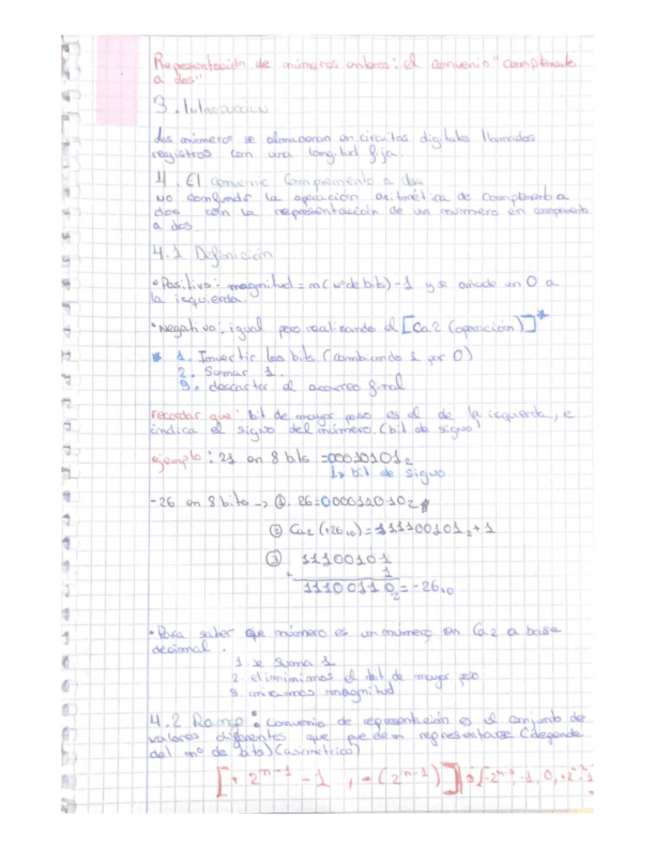 Representación de números enteros: el convenio "complemento
a dos"
3. Introducción
Los números se almacenan en circuitos digitales llamados
registros con una longitud fija.
4. El convenio Complemento a dos
No confundir la operación aritmética de complemento a
dos con la representación de un número en complemento
a dos.
4.1 Definición
• Positivo: magnitud = n (nº de bits) - 1 y se añade un 0 a
la izquierda.
• Negativo: igual pero realizando el [Ca2 (operación)]*
* 1. Invertir los bits (cambiando 1 por 0)
2. Sumar 1.
3. descartar el acarreo final
recordar que: bit de mayor peso es el de la izquierda, e
indica el signo del número. (bit de signo)
ejemplo: 21 en 8 bits = 00010101₂
↳ bit de signo
-26 en 8 bits -> ①. 26=00011010₂
② Ca2 (+26₁₀) = 11100101₂ + 1
③ 11100101
1
11100110₂ = -26₁₀
• Para saber que número es un número en Ca2 a base
decimal.
1. se suma 1
2. eliminimos el bit de mayor peso
3. magnitud
4.2 Rango: Convenio de representación es el conjunto de
valores diferentes que pueden representarse (depende
del nº de bits) (asimétrico)
[+ 2ⁿ⁻¹ - 1 , - (2ⁿ⁻¹)]